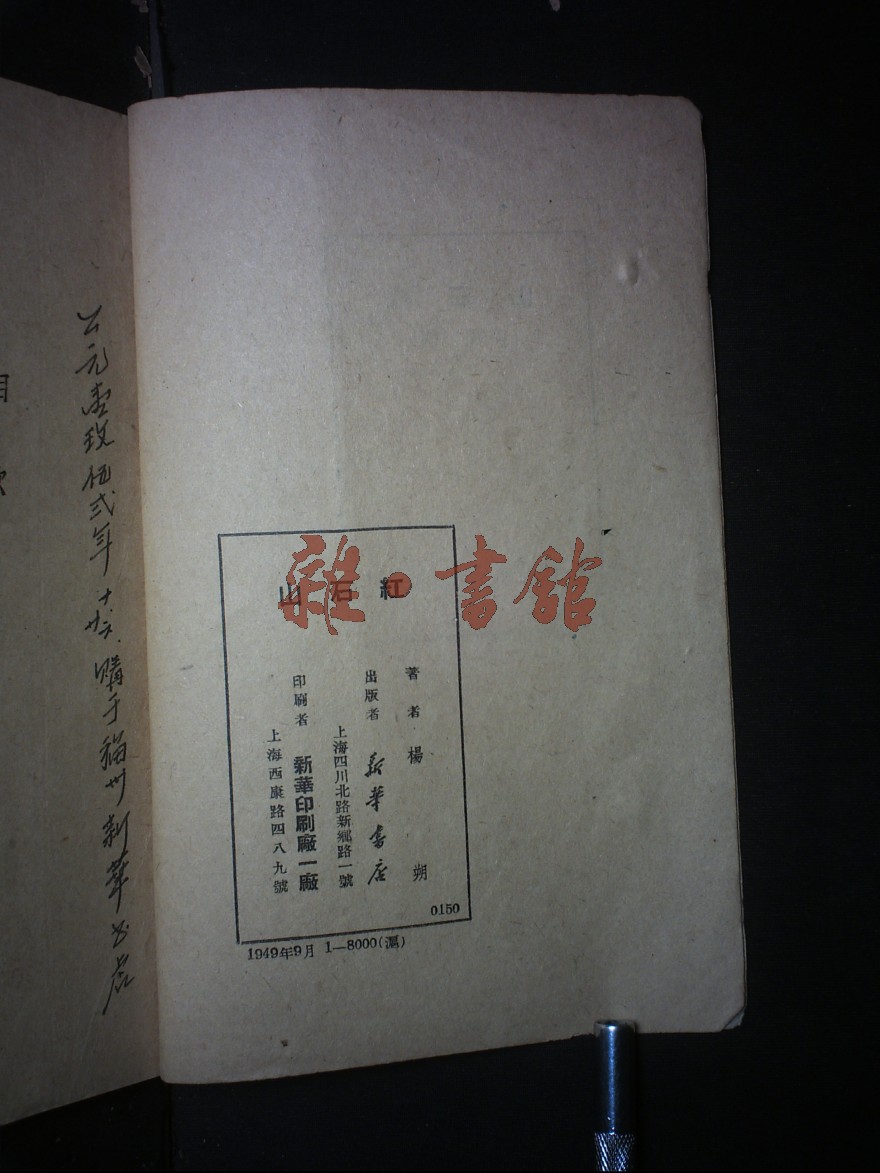 紅石山
著者 楊朔
出版者 新華書店
上海四川北路新鄉路一號
印刷者 新華印刷廠一廠
上海西康路四八九號
0150
1949年9月 1—8000(滬)
雜·書館
公元壹玖伍弍年 十 廿六 購于福州新華书店
目